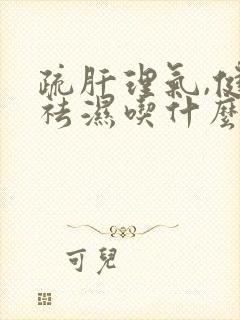 疏肝理氣,健
祛濕喫什麼
可兒